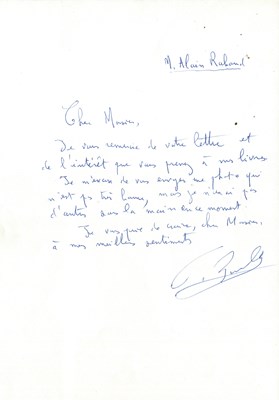 M. Alain Rabaud
Cher Monsieur,
Je vous remercie de votre lettre et
de l'intérêt que vous prenez à mes livres
Je m'excuse de vous envoyer une photo qui
n'est pas très bonne, mais je n'en ai pas
d'autres sous la main en ce moment
Je vous prie de croire, cher Monsieur,
à mes meilleurs sentiments